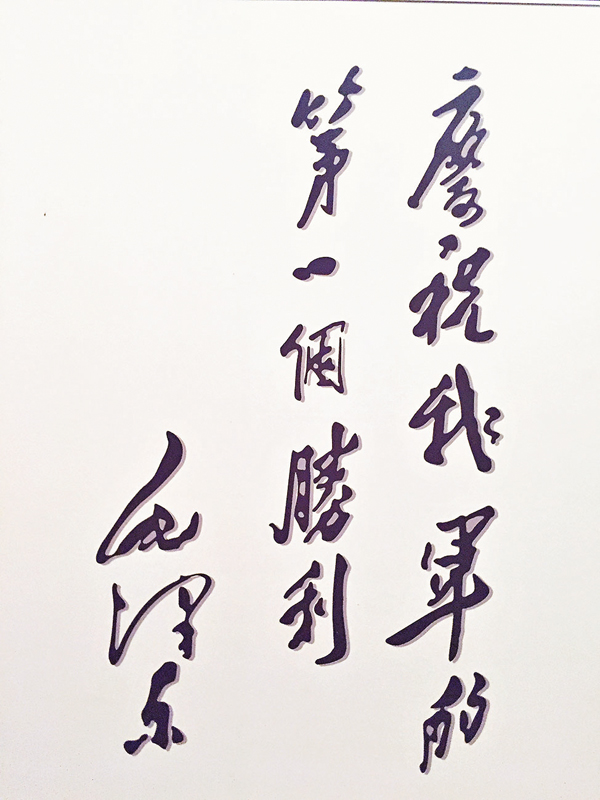 慶祝我軍的
第一個勝利
毛澤东